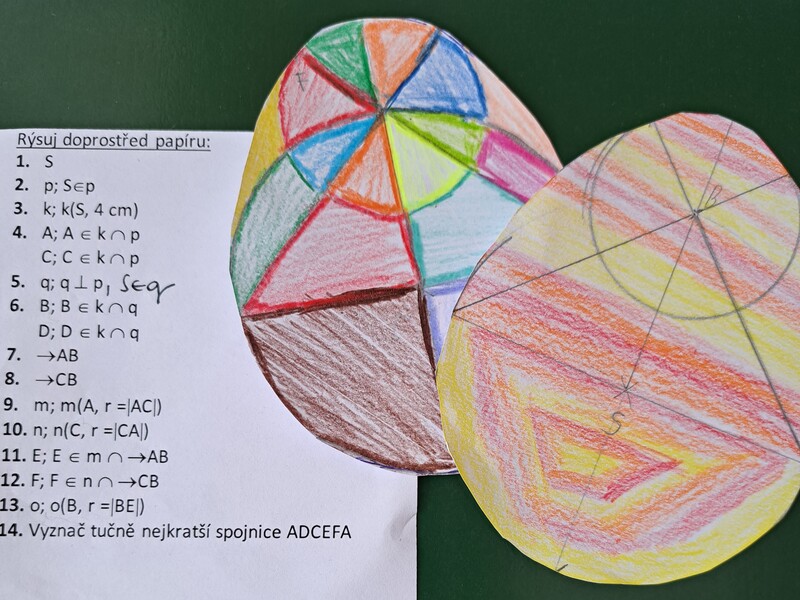 Rýsuj doprostřed papíru:
1. S
2. p; S∈p
3. k; k(S, 4 cm)
4. A; A ∈ k ∩ p
C; C ∈ k ∩ p
5. q; q ⊥ p, S∈q
6. B; B ∈ k ∩ q
D; D ∈ k ∩ q
7. →AB
8. →CB
9. m; m(A, r =|AC|)
10. n; n(C, r =|CA|)
11. E; E ∈ m ∩ →AB
12. F; F ∈ n ∩ →CB
13. o; o(B, r =|BE|)
14. Vyznač tučně nejkratší spojnice ADCEFA
F
B
S